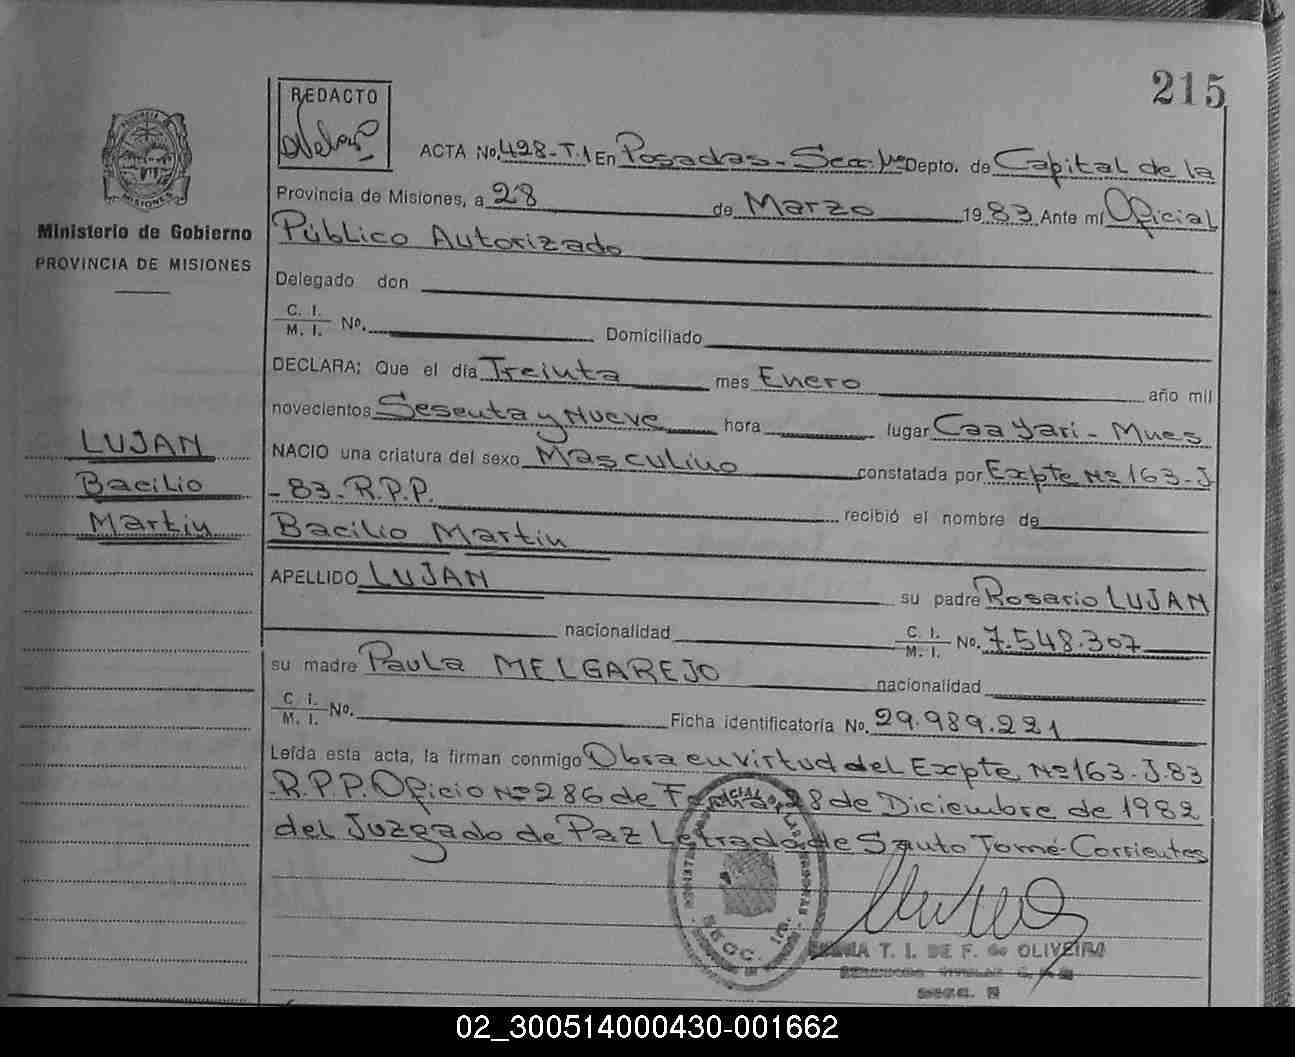 215
REDACTO
ACTA No. 498-T.1 En Posadas - Secc. 1ª Depto. de Capital de la
Provincia de Misiones, a 28 de Marzo 1983 Ante mí Oficial
Público Autorizado
Delegado don
C. I.
M. I. No.
Domiciliado
DECLARA: Que el día Treinta mes Enero año mil
novecientos Sesenta y Nueve hora lugar Caa Yari - Mnes
NACIO una criatura del sexo Masculino constatada por Expte Nº 163-J
-83-R.P.P. recibió el nombre de
Bacilio Martin
APELLIDO LUJAN su padre Rosario LUJAN
nacionalidad C. I.
M. I. No. 7.548.307
su madre Paula MELGAREJO nacionalidad
C. I.
M. I. No. Ficha identificatoria No. 29.989.221
Leída esta acta, la firman conmigo Obra en virtud del Expte Nº 163-J-83
R.P.P. Oficio Nº 286 de Fecha 28 de Diciembre de 1982
del Juzgado de Paz Letrado de Santo Tomé-Corrientes
PROVINCIA
MISIONES
Ministerio de Gobierno
PROVINCIA DE MISIONES
LUJAN
Bacilio
Martin
SECC. 1ª
T. I. DE F. de OLIVEIRA
02_300514000430-001662